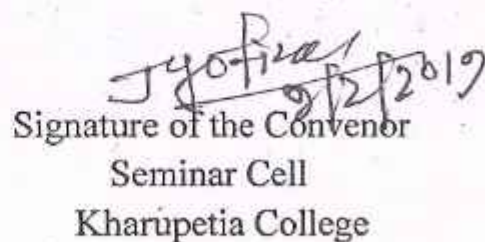 9/2/2019
Signature of the Convenor
Seminar Cell
Kharupetia College